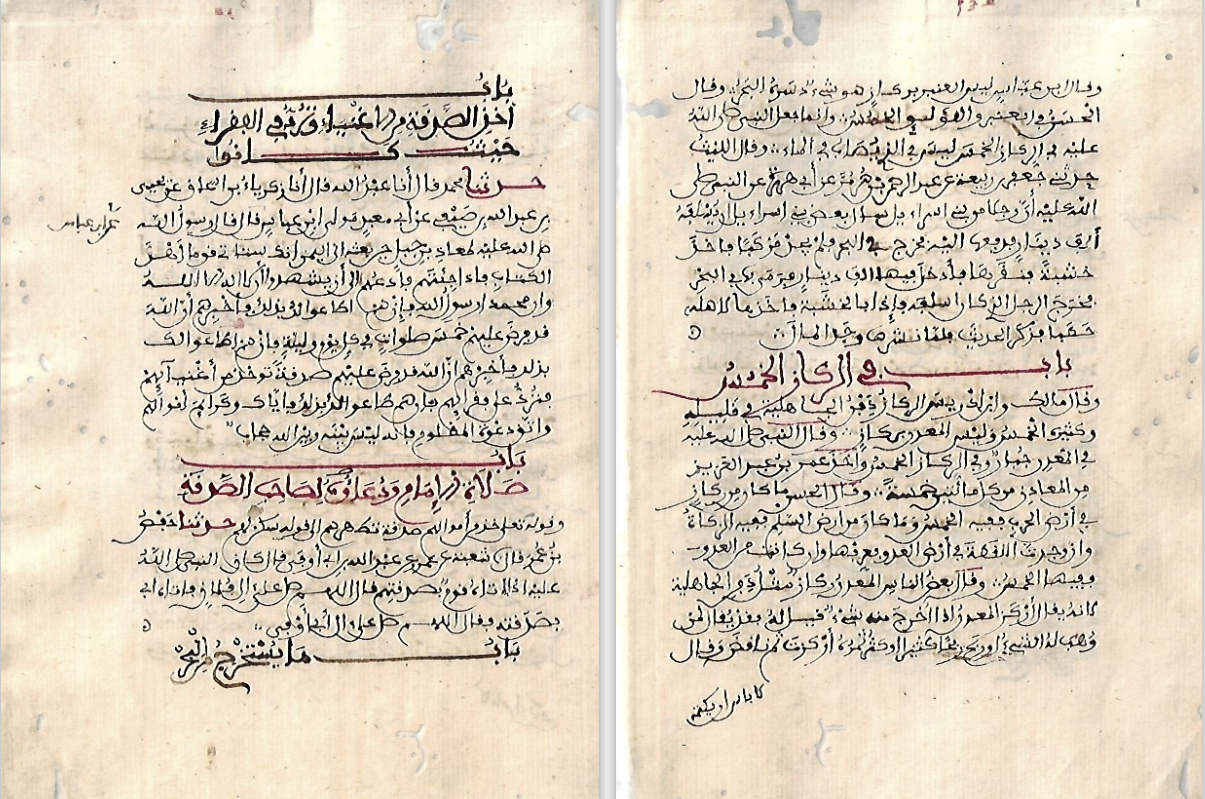 باب
أخذ الصدقة من الأغنياء وترد في الفقراء
حيث كانوا
حدثنا محمد قال أنا عبد الله قال أنا زكرياء بن إسحاق عن يحيى
بن عبد الله بن صيفي عن أبي معبد مولى ابن عباس قال قال رسول الله
صلى الله عليه لمعاذ بن جبل حين بعثه إلى اليمن إنك ستأتي قوما أهل
الكتاب فإذا جئتهم فادعهم إلى أن يشهدوا أن لا إله إلا الله
وأن محمدا رسول الله فإن هم أطاعوا لك بذلك فأخبرهم أن الله
قد فرض عليهم خمس صلوات في كل يوم وليلة فإن هم أطاعوا لك
بذلك فأخبرهم أن الله قد فرض عليهم صدقة توخذ من أغنيائهم
فترد على فقرائهم فإن هم أطاعوا لك بذلك فإياك وكرائم أموالهم
واتق دعوة المظلوم فإنه ليس بينه وبين الله حجاب
باب
صلاة الإمام ودعاؤه لصاحب الصدقة
وقوله تعلى خذ من أموالهم صدقة تطهرهم إلى قوله سكن لهم حدثنا حفص
بن عمر قال نا شعبة عن عمرو عن عبد الله بن أبي أوفى قال كان النبي صلى الله
عليه إذا أتاه قوم بصدقتهم قال اللهم صل على آل فلان فأتاه أبي
بصدقته فقال اللهم صل على آل أبي أوفى
باب ما يستخرج من البحر
عن ابن عباس
وقال ابن عباس ليس العنبر بركاز هو شيء دسره البحر وقال
الحسن في العنبر واللؤلؤ الخمس وإنما جعل النبي صلى الله
عليه في الركاز الخمس ليس في الذي يصاب في الماء وقال الليث
حدثني جعفر بن ربيعة عن عبد الرحمن بن هرمز عن أبي هريرة عن النبي صلى
الله عليه أن رجلا من بني إسراءيل سأل بعض بني إسراءيل أن يسلفه
ألف دينار فدفعها إليه فخرج في البحر فلم يجد مركبا فأخذ
خشبة فنقرها فأدخل فيها ألف دينار فرمى بها في البحر
فخرج الرجل الذي كان أسلفه فإذا بالخشبة فأخذها لأهله
حطبا فذكر الحديث فلما نشرها وجد المال
باب في الركاز الخمس
وقال مالك وابن إدريس الركاز دفن الجاهلية في قليله
وكثيره الخمس وليس المعدن بركاز وقال النبي صلى الله عليه
في المعدن جبار وفي الركاز الخمس وأخذ عمر بن عبد العزيز
من المعادن من كل مائتين خمسة وقال الحسن ما كان من ركاز
في أرض الحرب ففيه الخمس وما كان من أرض السلم ففيه الزكاة
وإن وجدت اللقطة في أرض العدو فعرفها وإن كانت من العدو
ففيها الخمس وقال بعض الناس المعدن ركاز مثل دفن الجاهلية
لأنه يقال أركز المعدن إذا أخرج منه شيء قيل له فقد يقال لمن
وهب له الشيء أو ربح ربحا كثيرا أو كثر ثمره أركزت ثم ناقض وقال
لا بأس أن يكتمه